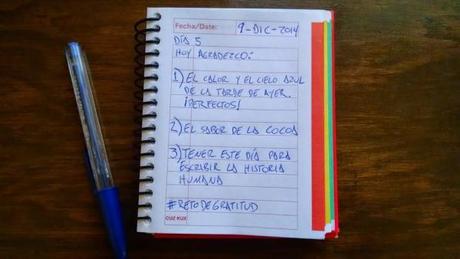 Fecha/Date: 9-DIC-2014
DÍA 5
HOY AGRADEZCO:
1) EL CALOR Y EL CIELO AZUL
DE LA TARDE DE AYER.
¡PERFECTOS!
2) EL SABOR DE LA COCOA
3) TENER ESTE DÍA PARA
ESCRIBIR LA HISTORIA
HUMANA
#RETODEGRATITUD